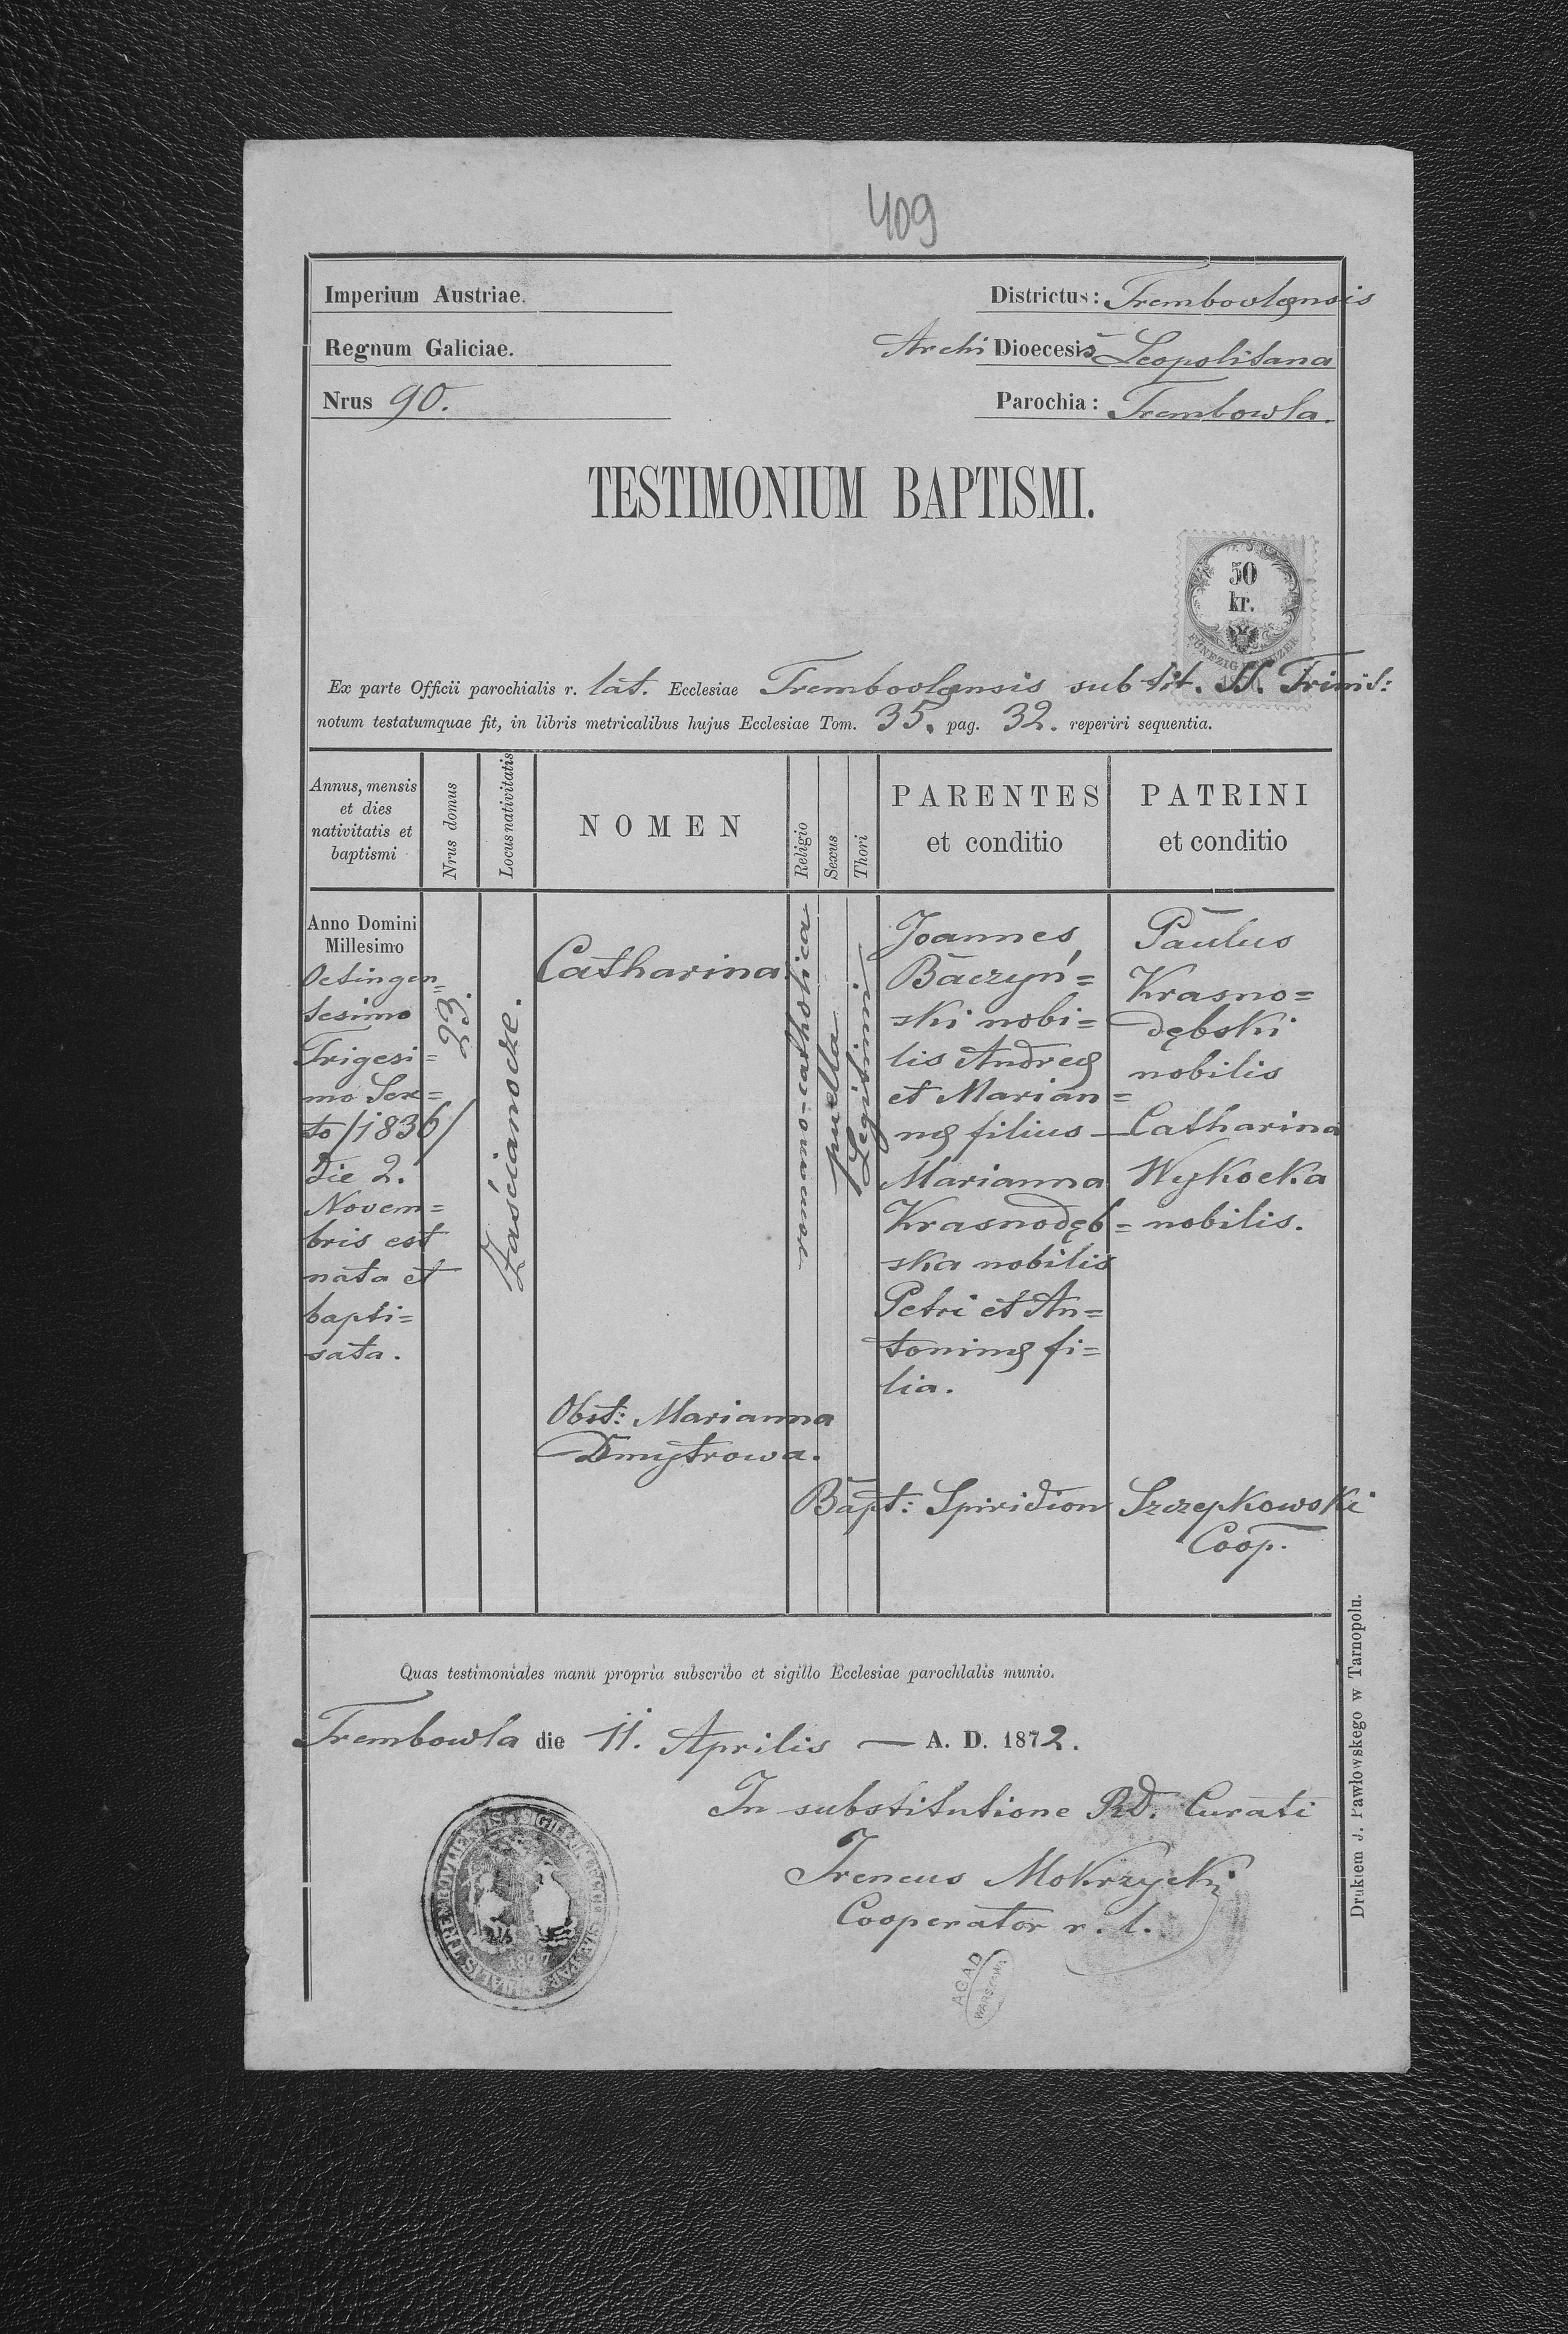 409
Imperium Austriae.
Districtus: Trembovlensis
Regnum Galiciae.
Archi Dioecesis Leopolitana
Nrus 90.
Parochia: Trembowla.
TESTIMONIUM BAPTISMI.
50
kr.
FÜNFZIG KREUZER
Ex parte Officii parochialis r. lat. Ecclesiae Trembovlensis sub tit. SS. Trinit:
notum testatumquae fit, in libris metricalibus hujus Ecclesiae Tom. 35. pag. 32. reperiri sequentia.
Annus, mensis
et dies
nativitatis et
baptismi
Nrus domus
Locus nativitatis
NOMEN
Religio
Sexus
Thori
PARENTES
et conditio
PATRINI
et conditio
Anno Domini
Millesimo
Octingen=
tesimo
Trigesi=
mo Sex=
to /1836/
die 2.
Novem=
bris est
nata et
bapti=
sata.
23.
Zaścianocze.
Catharina
Obst: Marianna
Dmytrowa.
romano-catholica
puella
Legitimi
Joannes
Baczyń=
ski nobi=
lis Andreæ
et Marian=
næ filius —
Marianna
Krasnodęb=
ska nobilis
Petri et An=
toninæ fi=
lia.
Paulus
Krasno=
dębski
nobilis
Catharina
Wykocka
nobilis.
Bapt: Spiridion Szczepkowski
Coop.
Quas testimoniales manu propria subscribo et sigillo Ecclesiae parochlalis munio.
Trembowla die 11. Aprilis — A. D. 1872.
In substitutione Rd. Curati
Ireneus Mokrzycki
Cooperator r. l.
AGAD
WARSZAWA
Drukiem J. Pawłowskego w Tarnopolu.